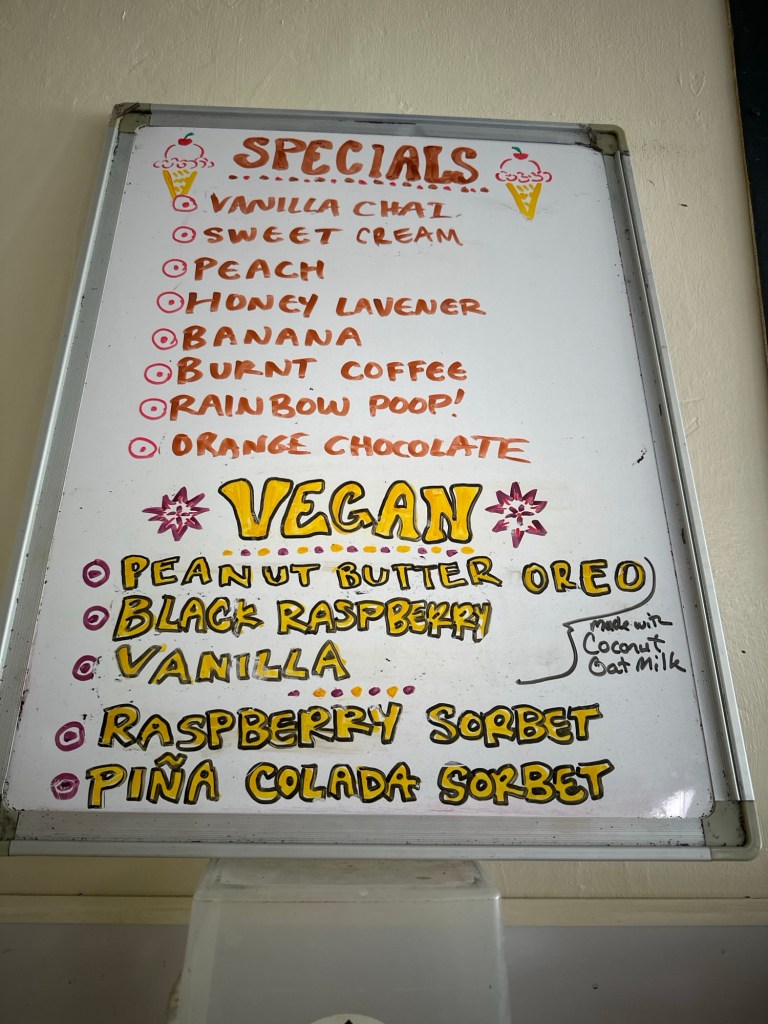 SPECIALS
VANILLA CHAI
SWEET CREAM
PEACH
HONEY LAVENER
BANANA
BURNT COFFEE
RAINBOW POOP!
ORANGE CHOCOLATE
VEGAN
PEANUT BUTTER OREO
BLACK RASPBERRY
VANILLA
Made with
Coconut
Oat Milk
RASPBERRY SORBET
PIÑA COLADA SORBET